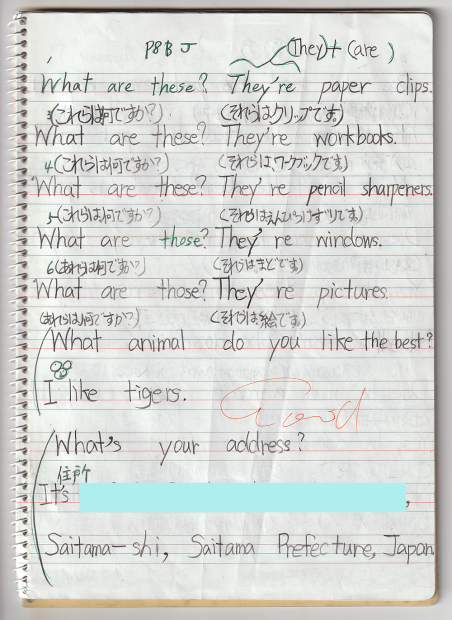 P8 B J (They) + (are)
What are these? They're paper clips.
3(これらは何ですか?) (それらは、クリップです)
What are these? They're workbooks.
4(これらは何ですか?) (それらは、ワークブックです)
What are these? They're pencil sharpeners.
5(これらは何ですか?) (それらはえんぴつけずりです)
What are those? They're windows.
6(あれらは何ですか?) (それらは、まどです)
What are those? They're pictures.
(あれらは何ですか?) (それらは絵です)
What animal do you like the best?
I like tigers.
Good
What's your address?
住所
It's ,
Saitama-shi, Saitama Prefecture, Japan